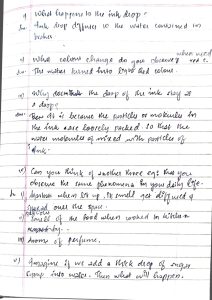 i) What happens to the ink drop?
Ans- Ink drop diffuses in the water contained in
beaker.
when need
ii) What colour change do you observe
Ans- The water turned into light red colour.
iii) Why the drop of the ink stay as
a drop?
Ans- This is because the particles or molecules in
the ink are loosely packed so that the
water molecules of mixed with particles of
ink.
iv) Can you think of another three egs that you
observe the same phenomena in your daily life.
i) when lit up, its smell get diffused &
spread over the space.
ii) Smell of the food when cooked in kitchen
nearby.
iii) Aroma of perfume.
v) Imagine if we add a thick drop of sugar
into water. Then what will happen.